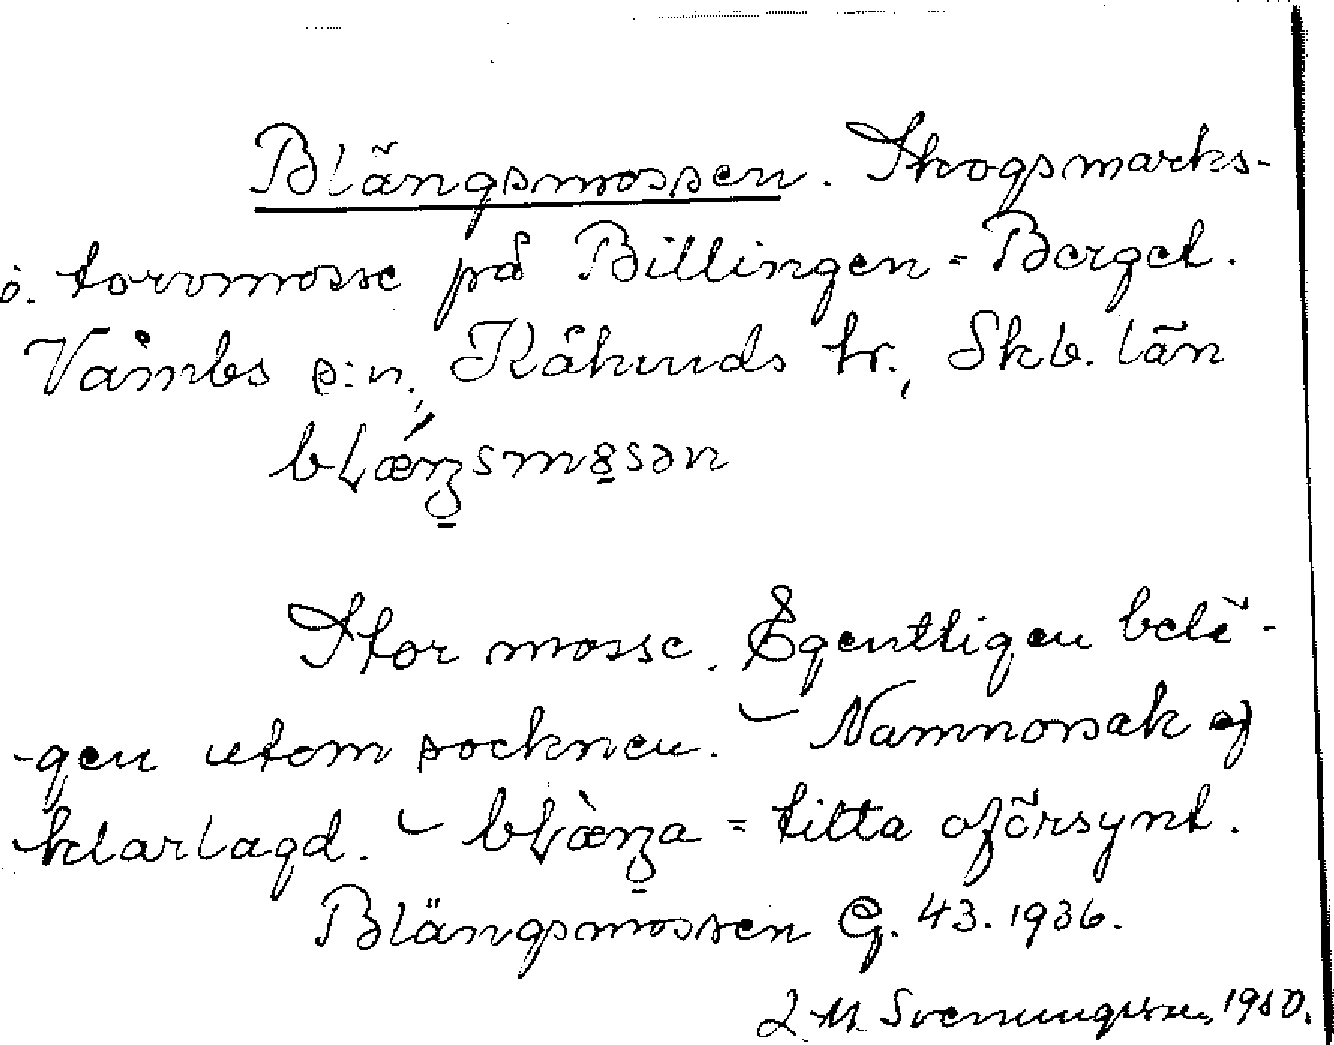 Blängsmossen. Skogsmarks-
o. torvmosse på Billingen-Berget.
Våmbs s:n, Kåkinds hr., Skb. län
bLǽŋsmo̲sən
Stor mosse. Egentligen belä-
-gen utom socknen. – Namnorsak ej
klarlagd. – bLæ̀ŋa = titta oförsynt.
Blängsmossen G. 43. 1936.
Svenungsson 1980.